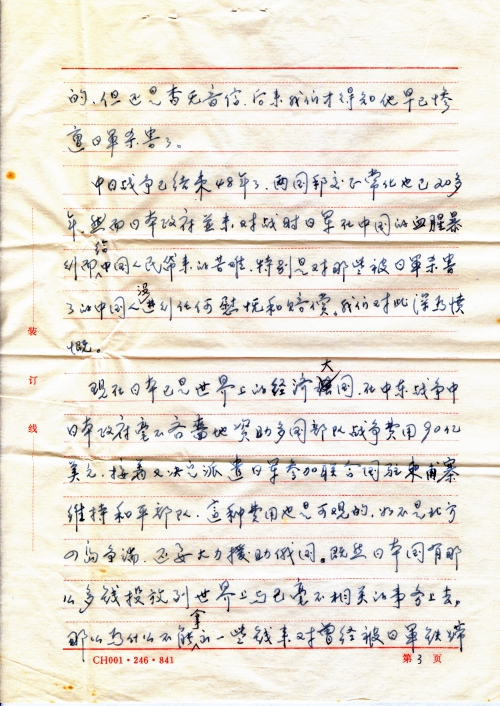 的，但还是杳无音信，后来我们才得知他早已惨
遭日军杀害了。
中日战争已结束48年了，两国邦交正常化也已20多
年，然而日本政府并未对战时日军在中国的血腥暴
行即给中国人民带来的苦难，特别是对那些被日军杀害
了的中国人进行任何慰抚和赔偿。我们对此深为愤
慨。
没
现在日本已是世界上的经济大国，在中东战争中
日本政府毫不吝啬地资助多国部队战争费用90亿
美元，接着又决定派遣日军参加联合国驻柬甫寨
维持和平部队，这种费用也是可观的，如不是北方
四岛争端，还要大力援助俄国。既然日本国有那
么多钱投放到世界上与己毫不相关的事务上去，
那么为什么不能拿出一些钱来对曾经被日军铁蹄
装
订
线
CH001·246·841
第3页